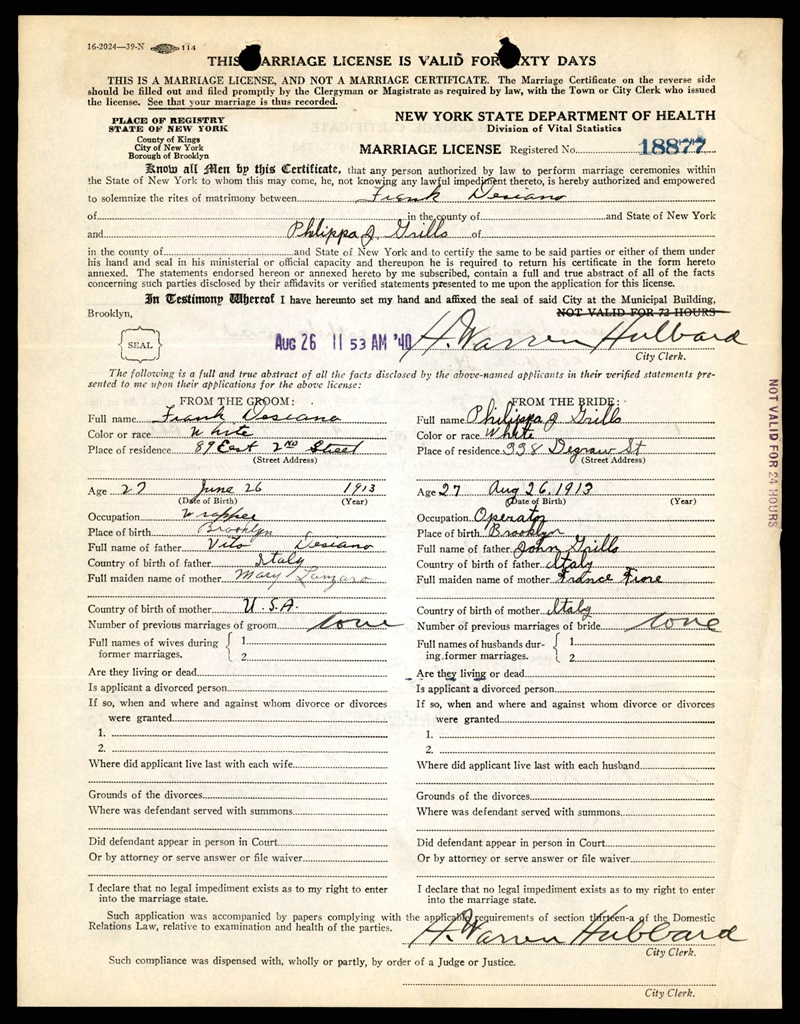 16-2024—39-N 114
THIS MARRIAGE LICENSE IS VALID FOR SIXTY DAYS
THIS IS A MARRIAGE LICENSE, AND NOT A MARRIAGE CERTIFICATE. The Marriage Certificate on the reverse side
should be filled out and filed promptly by the Clergyman or Magistrate as required by law, with the Town or City Clerk who issued
the license. See that your marriage is thus recorded.
PLACE OF REGISTRY
STATE OF NEW YORK
County of Kings
City of New York
Borough of Brooklyn
NEW YORK STATE DEPARTMENT OF HEALTH
Division of Vital Statistics
MARRIAGE LICENSE Registered No. 18877
Know all Men by this Certificate, that any person authorized by law to perform marriage ceremonies within
the State of New York to whom this may come, he, not knowing any lawful impediment thereto, is hereby authorized and empowered
to solemnize the rites of matrimony between Frank Desiano
of in the county of and State of New York
and Philippa J. Grillo of
in the county of and State of New York and to certify the same to be said parties or either of them under
his hand and seal in his ministerial or official capacity and thereupon he is required to return his certificate in the form hereto
annexed. The statements endorsed hereon or annexed hereto by me subscribed, contain a full and true abstract of all of the facts
concerning such parties disclosed by their affidavits or verified statements presented to me upon the application for this license.
In Testimony Whereof I have hereunto set my hand and affixed the seal of said City at the Municipal Building,
Brooklyn, NOT VALID FOR 72 HOURS
SEAL
AUG 26 11 53 AM '40
H. Warren Hubbard
City Clerk.
NOT VALID FOR 24 HOURS
The following is a full and true abstract of all the facts disclosed by the above-named applicants in their verified statements pre-
sented to me upon their applications for the above license:
FROM THE GROOM:
Full name Frank Desiano
Color or race White
Place of residence 89 East 2nd Street
(Street Address)
Age 27 June 26 1913
(Date of Birth) (Year)
Occupation Wrapper
Place of birth Brooklyn
Full name of father Vito Desiano
Country of birth of father Italy
Full maiden name of mother Mary Lanzaro
Country of birth of mother U.S.A.
Number of previous marriages of groom none
Full names of wives during
former marriages. 1
2
Are they living or dead
Is applicant a divorced person
If so, when and where and against whom divorce or divorces
were granted
1.
2.
Where did applicant live last with each wife
Grounds of the divorces
Where was defendant served with summons
Did defendant appear in person in Court
Or by attorney or serve answer or file waiver
I declare that no legal impediment exists as to my right to enter
into the marriage state.
FROM THE BRIDE:
Full name Philippa J Grillo
Color or race White
Place of residence 338 Degraw St
(Street Address)
Age 27 Aug 26, 1913
(Date of Birth) (Year)
Occupation Operator
Place of birth Brooklyn
Full name of father John Grillo
Country of birth of father Italy
Full maiden name of mother France Fiore
Country of birth of mother Italy
Number of previous marriages of bride none
Full names of husbands dur-
ing former marriages. 1
2
Are they living or dead
Is applicant a divorced person
If so, when and where and against whom divorce or divorces
were granted
1.
2.
Where did applicant live last with each husband
Grounds of the divorces
Where was defendant served with summons
Did defendant appear in person in Court
Or by attorney or serve answer or file waiver
I declare that no legal impediment exists as to my right to enter
into the marriage state.
Such application was accompanied by papers complying with the applicable requirements of section thirteen-a of the Domestic
Relations Law, relative to examination and health of the parties.
H. Warren Hubbard
City Clerk.
Such compliance was dispensed with, wholly or partly, by order of a Judge or Justice.
City Clerk.